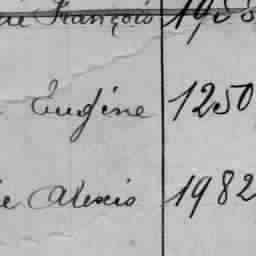 François
Eugène 1250
Alexis 1982